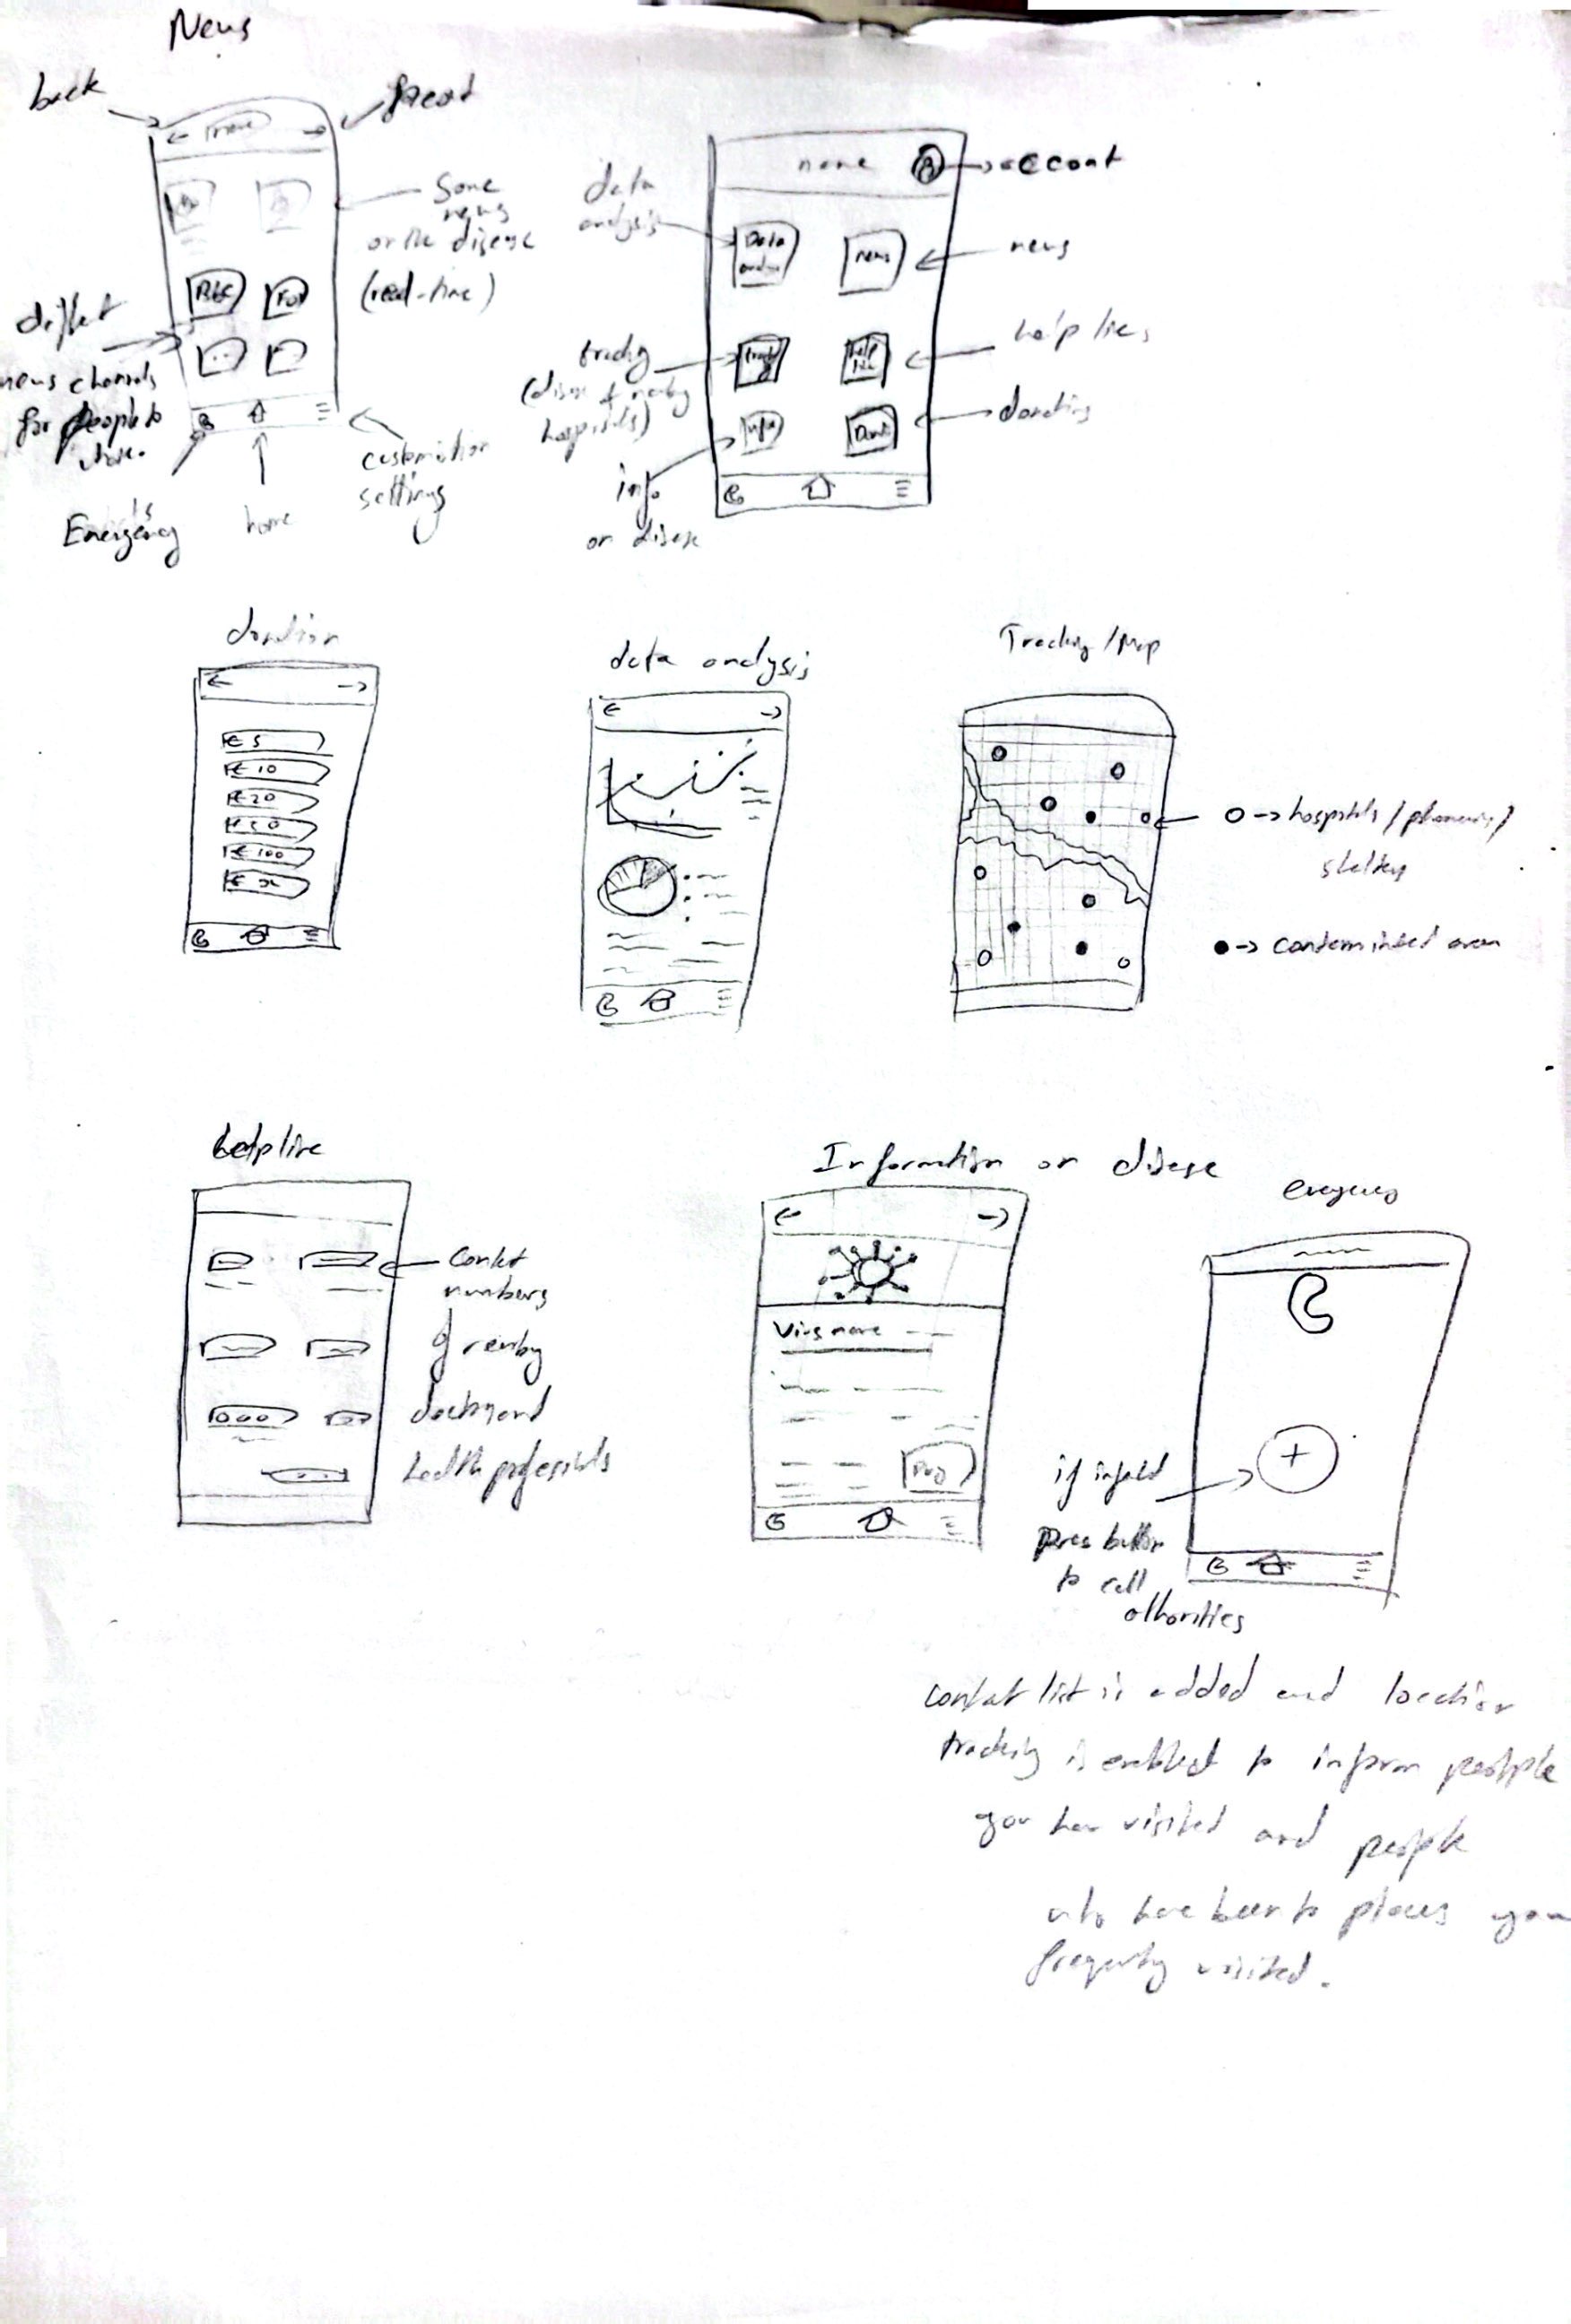 News
back
name
some
news
on the disease
(real-time)
BBC
FOX
news channels
for people to
Emergency
home
settings
name
account
data
analysis
Data
news
news
tracking
hospitals)
help
line
help lines
info
on disease
donations
donation
€ 5
€ 10
€ 20
€ 50
€ 100
€ x
data analysis
Tracking / Map
o → hospitals / pharmacies /
shelters
• → contaminated area
helpline
contact
numbers
of nearby
doctors and
health professionals
Information on disease
Virus name
emergency
if infected
press button
to call
athorities
contact list is added and location
tracking is enabled to inform people
you have visited and people
who have been to places you
frequently visited.